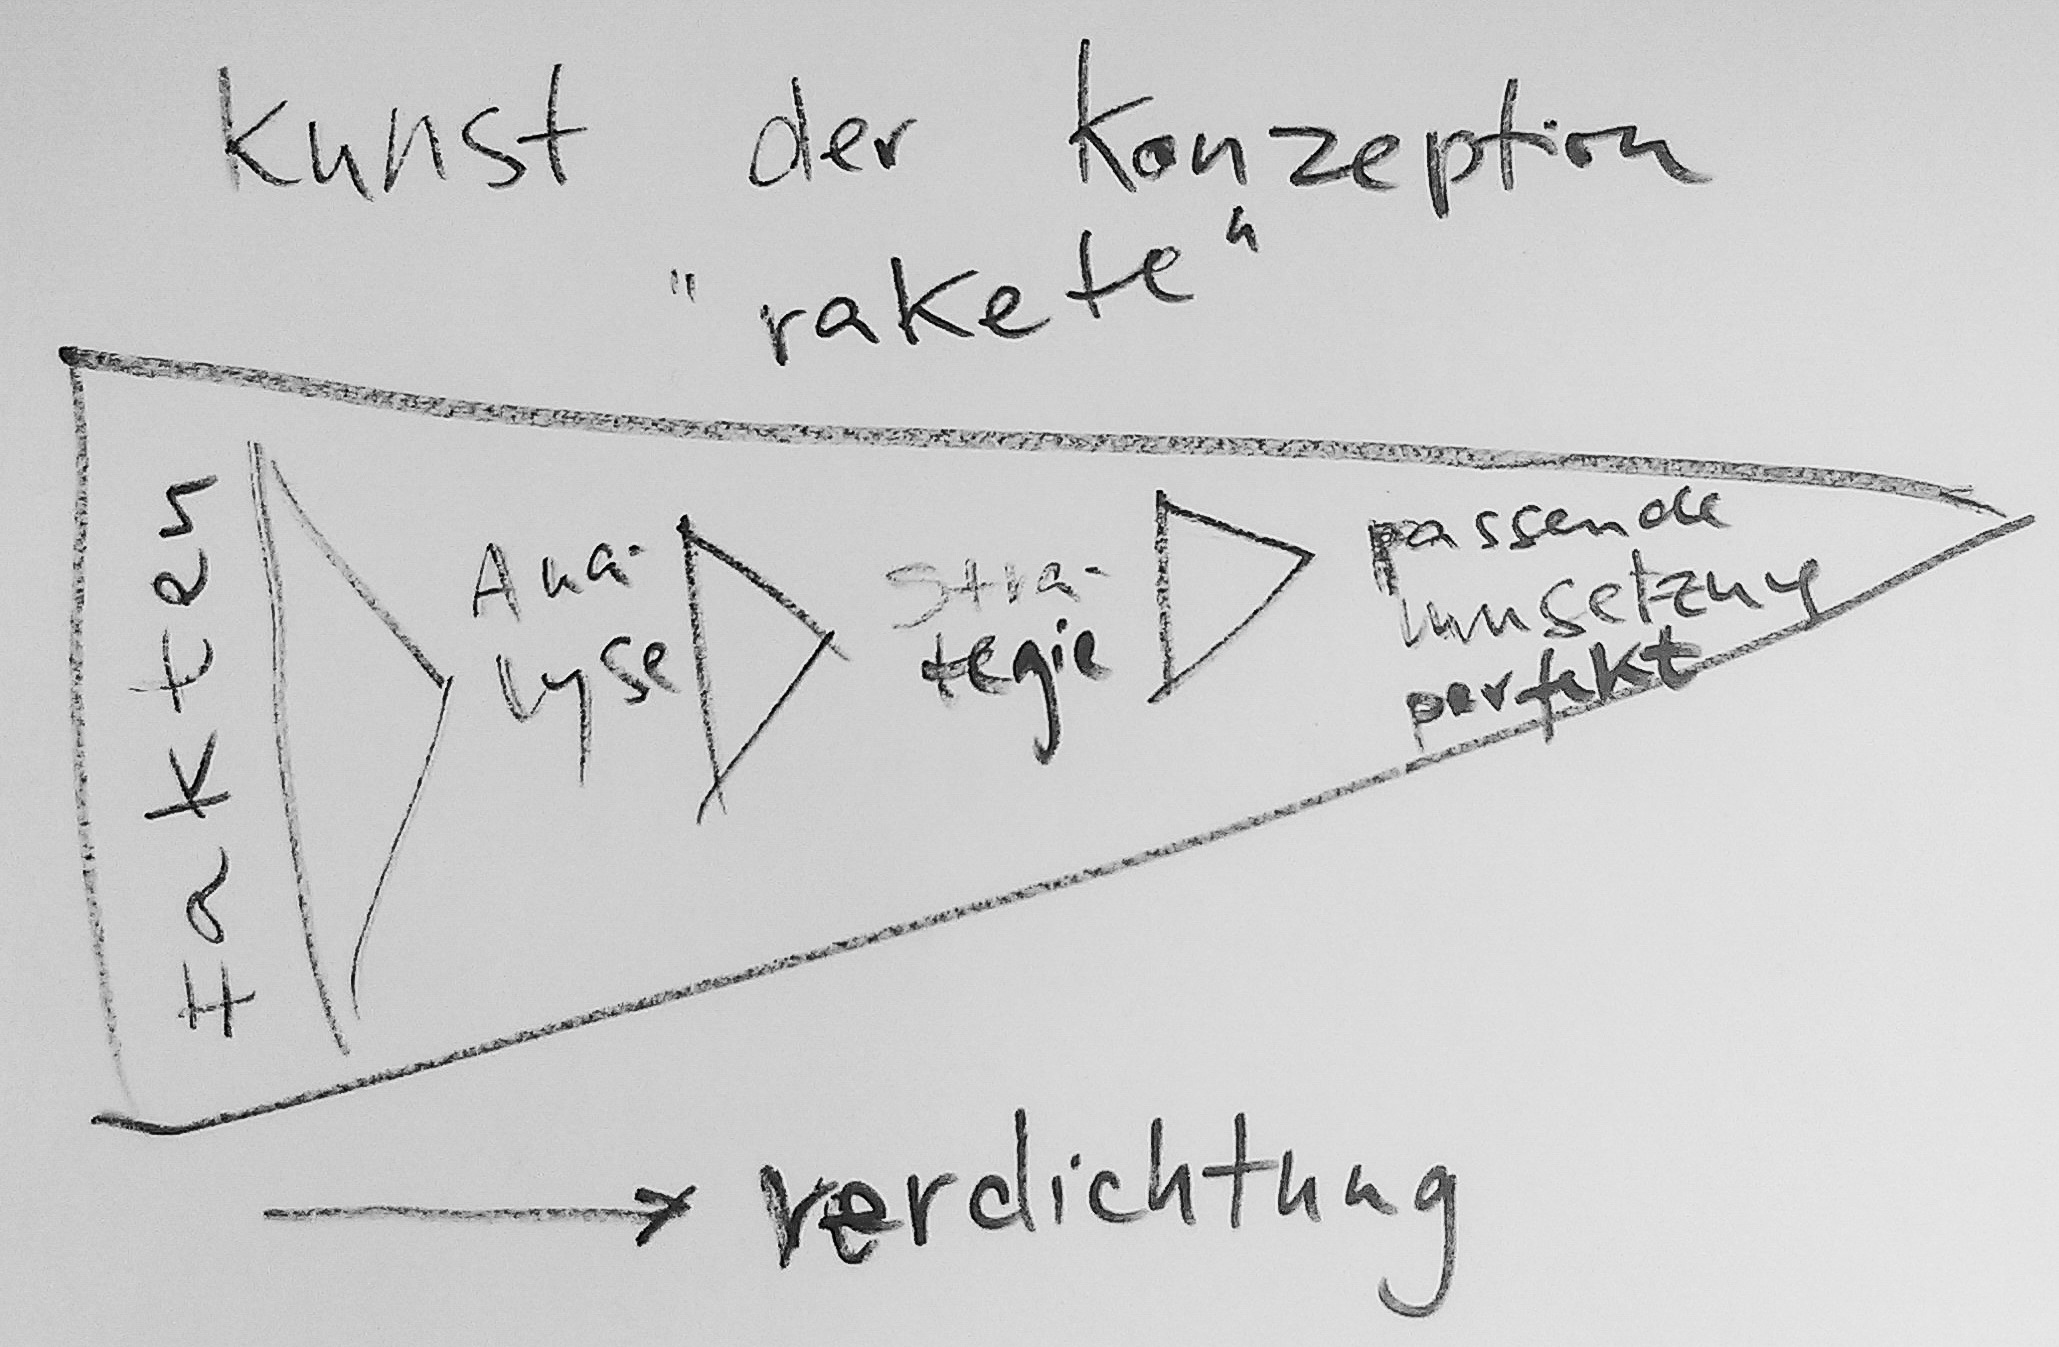 kunst der konzeption
"rakete"
fakten
Ana-
lyse
Stra-
tegie
passende
umsetzung
perfekt
verdichtung